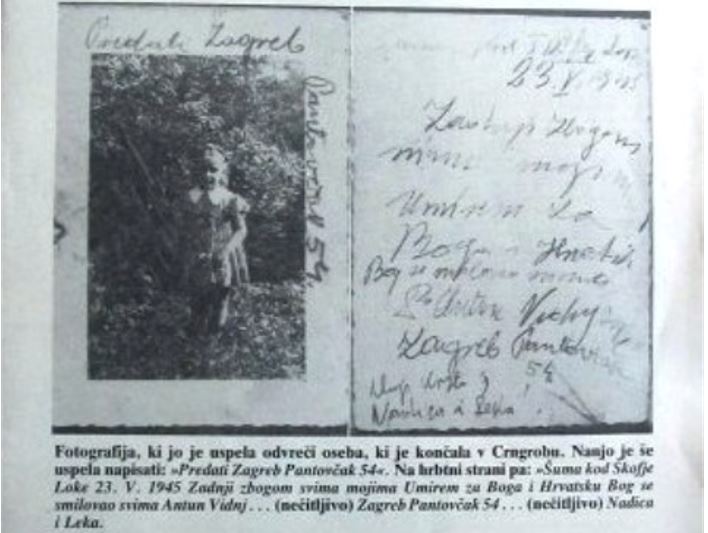 Predati Zagreb
Pantovčak 54.
23 V. 1945
Zadnji Zbogom
svima mojima
Umirem za
Boga i Hrvatsk
Bog se smilovao svima
Antun Vidnj
Zagreb Pantovčak
54
Nadica i Leka!
Fotografija, ki jo je uspela odvreči oseba, ki je končala v Crngrobu. Nanjo je še
uspela napisati: »Predati Zagreb Pantovčak 54«. Na hrbtni strani pa: »Šuma kod Škofje
Loke 23. V. 1945 Zadnji zbogom svima mojima Umirem za Boga i Hrvatsku Bog se
smilovao svima Antun Vidnj . . . (nečitljivo) Zagreb Pantovčak 54 . . . (nečitljivo) Nadica
i Leka.